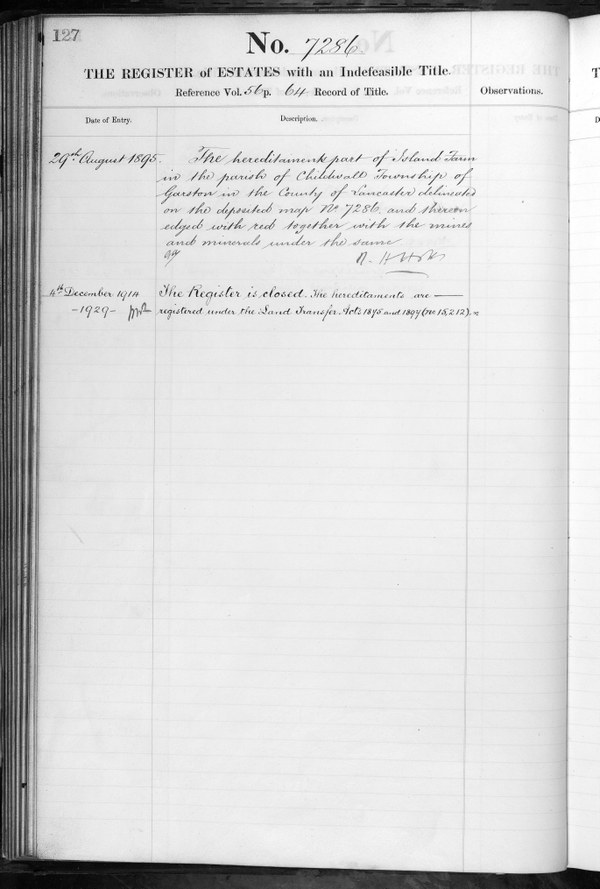 127
No. 7286.
THE REGISTER of ESTATES with an Indefeasible Title.
Reference Vol. 56 p. 64 Record of Title.
Observations.
Date of Entry.
Description.
29th August 1895.
The hereditaments part of Island Farm
in the parish of Childwall Township of
Garston in the County of Lancaster delineated
on the deposited map No 7286 and thereon
edged with red together with the mines
and minerals under the same
4th December 1914
The Register is closed. The hereditaments are —
-1929-
registered under the Land Transfer Acts 1875 and 1897 (No 15,212). =